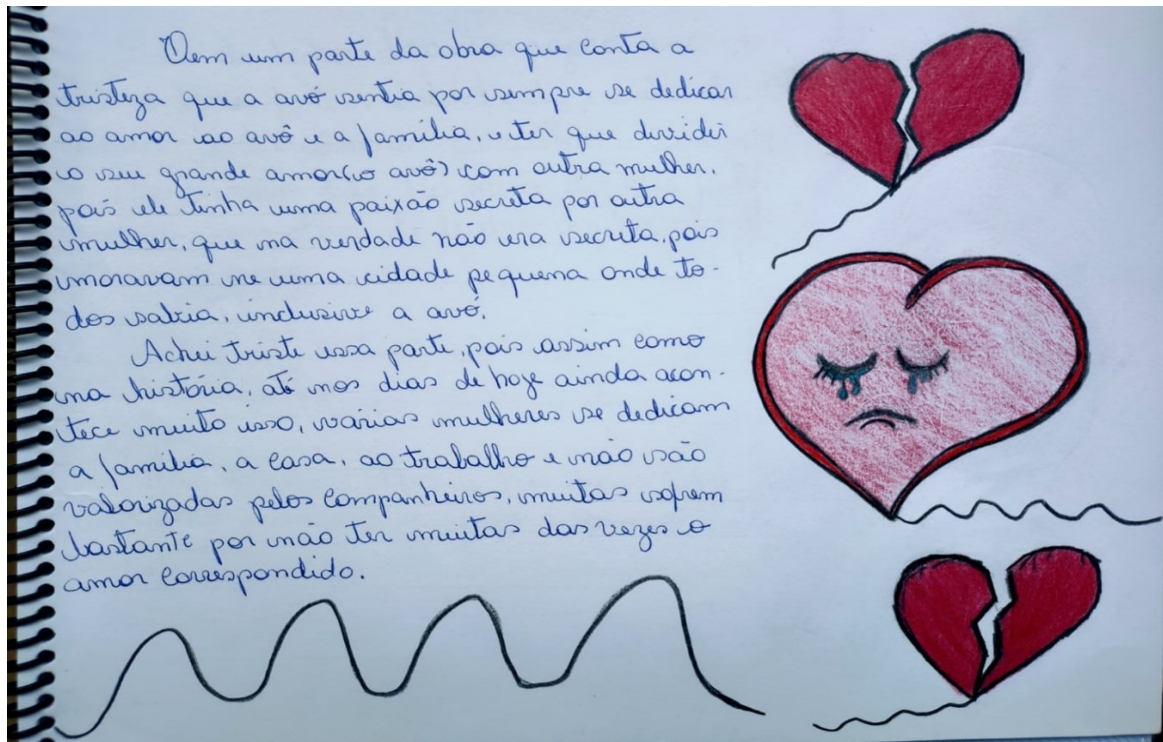 Tem um parte da obra que conta a
tristeza que a avó sentia por sempre se dedicar
ao amor ao avô e a família, e ter que dividir
o seu grande amor(o avô) com outra mulher,
pois ele tinha uma paixão secreta por outra
mulher, que na verdade não era secreta, pois
moravam ne uma cidade pequena onde to-
dos sabia, inclusive a avó.
Achei triste essa parte, pois assim como
na história, até nos dias de hoje ainda acon-
tece muito isso, várias mulheres se dedicam
a família, a casa, ao trabalho e não são
valorizadas pelos companheiros, muitas sofrem
bastante por não ter muitas das vezes o
amor correspondido.